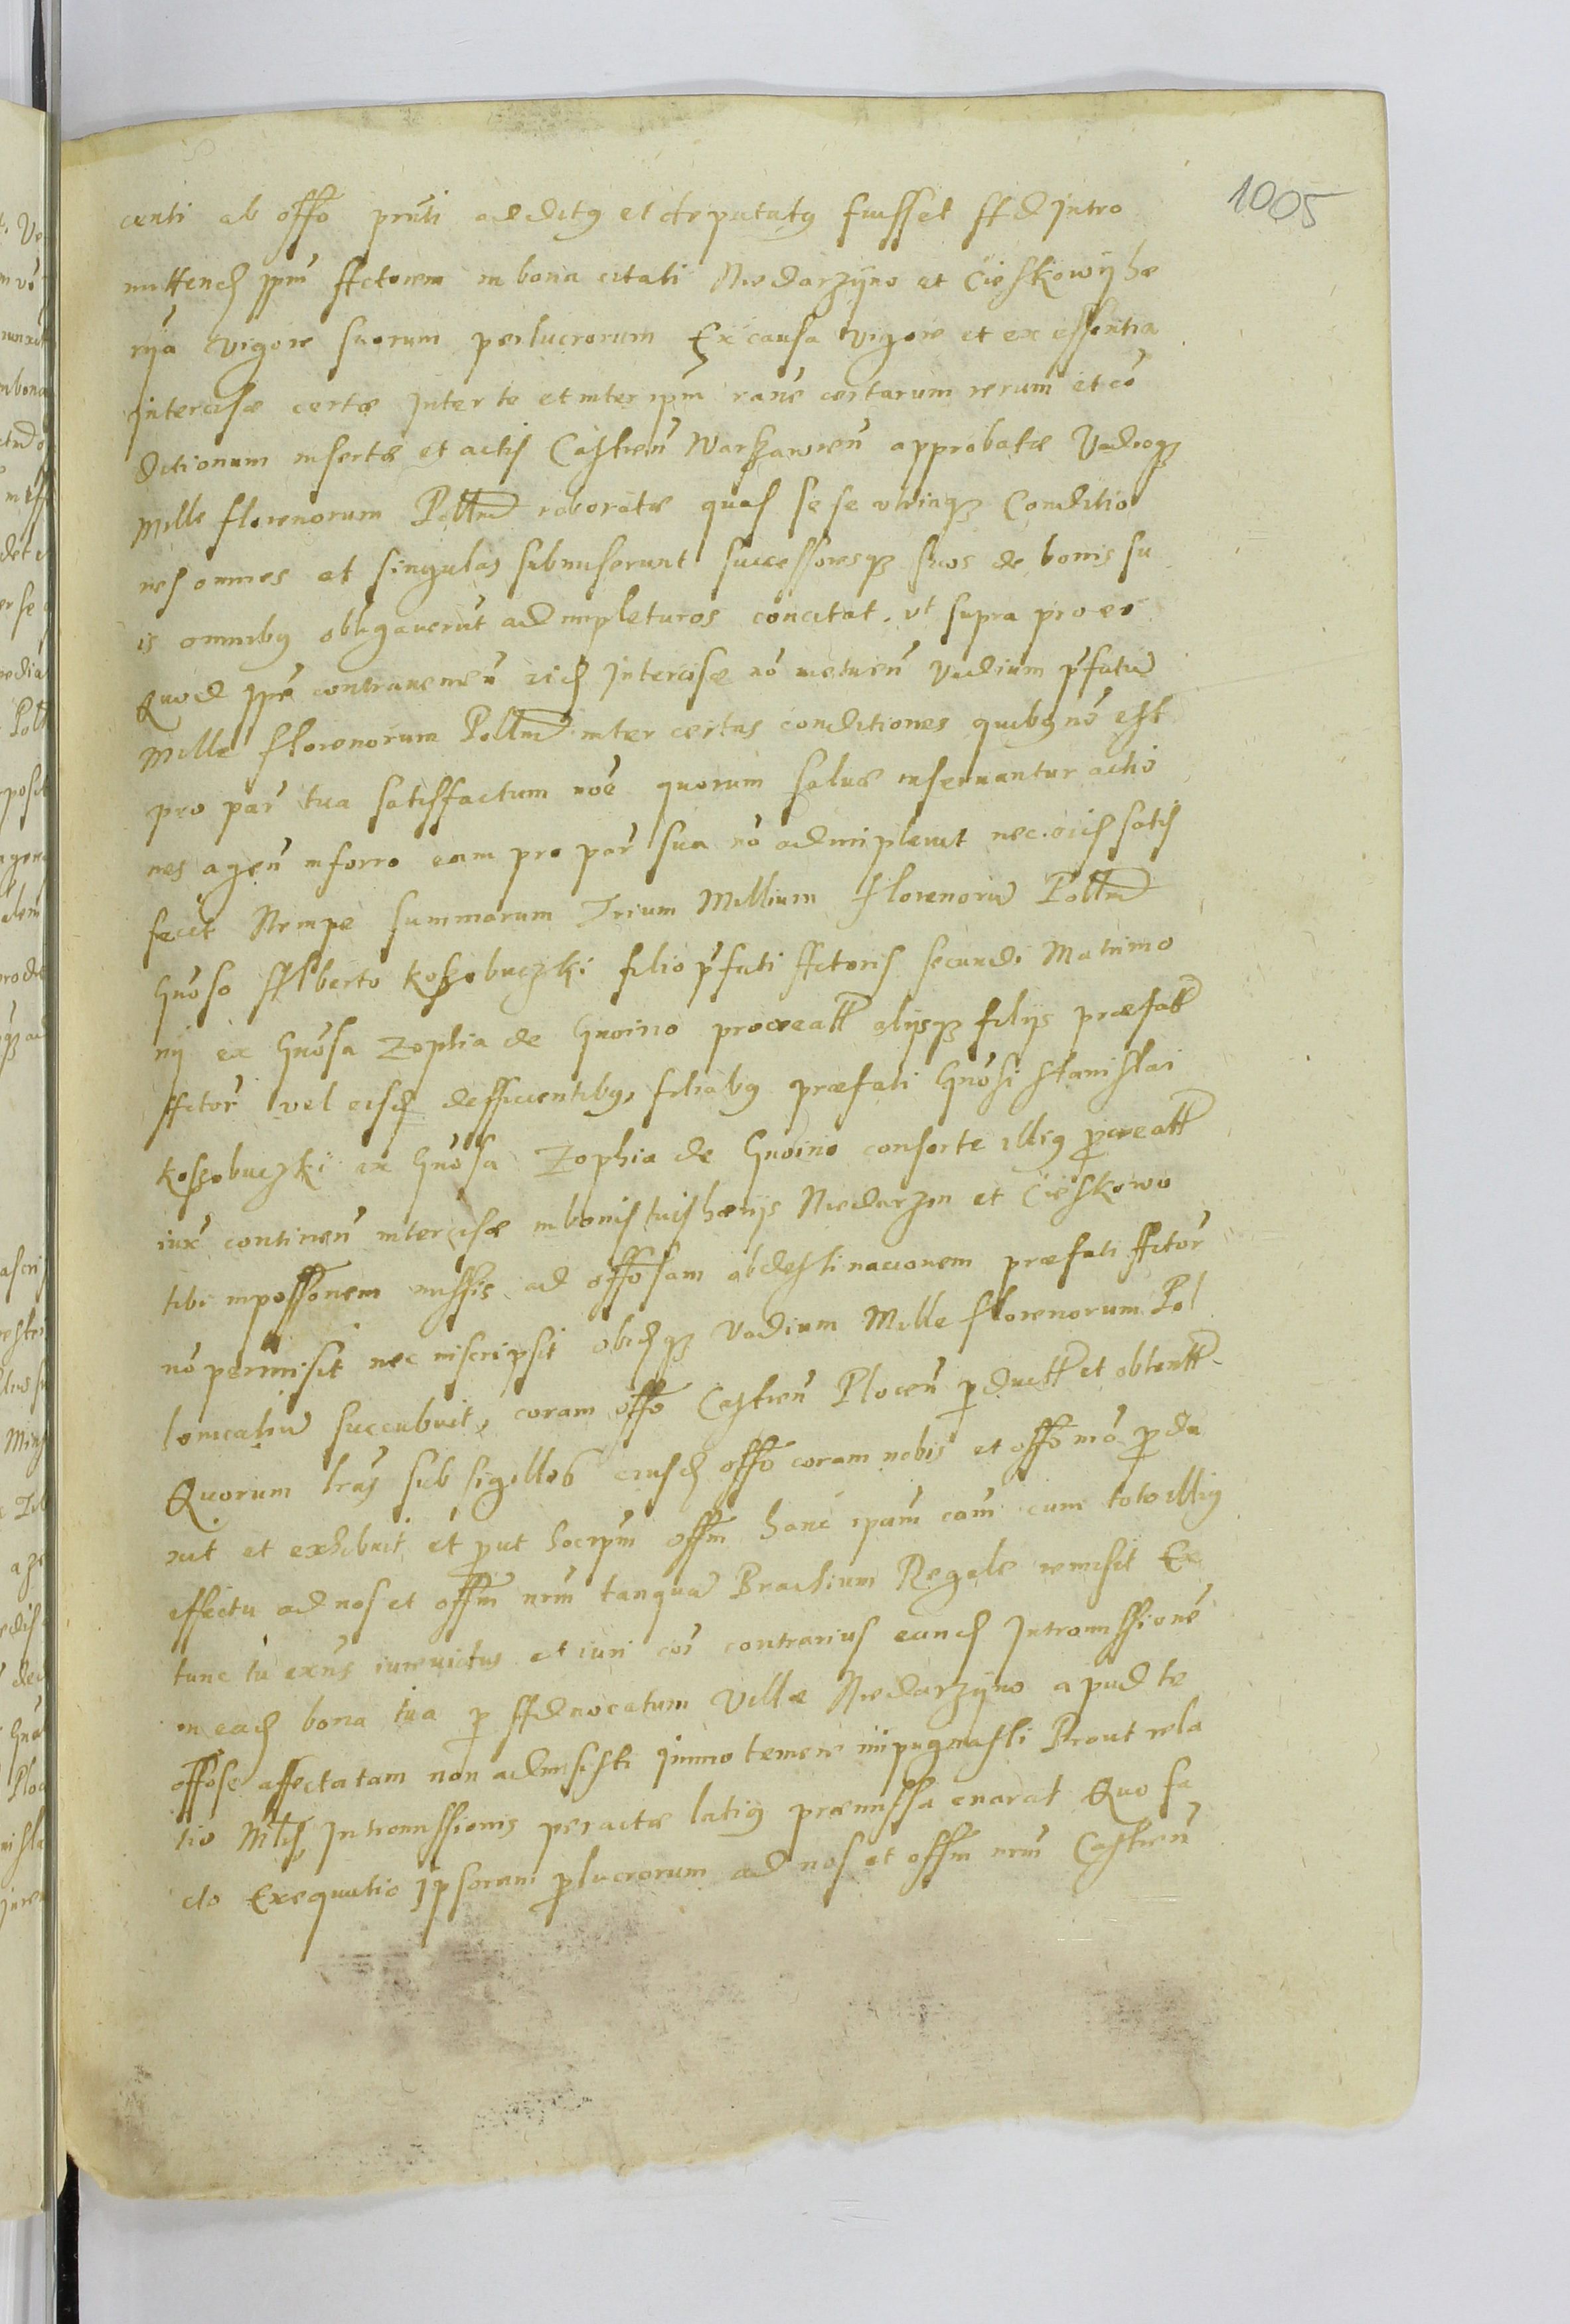 1005
centi ab offo pnti additꝯ et deputatꝯ fuisset ad intro
mittendꝫ ipm Actorem in bona citati Niedarzyno et Cieskowy hæ
ria vigore suorum perlucrorum Ex causa vigore et ex essentia
intercisæ certæ inter te et inter ipm ranẽ certarum rerum et cõ
ditionum insertæ et actis Castreñ Warszavieñ approbatæ Vadioqꝫ
Mille florenorum Polład roboratæ quas se se utrinqꝫ Conditio
nes omnes et singulas submiserunt successoresqꝫ suos de bonis su
is omnibꝯ obligaverũt adimpleturos concitat. vt supra pro eo
Quod ipse contraveneñ eidꝫ Intercisæ nõ metueñ Vadium p̃fatũ
Mille florenorum Polład inter certas conditiones quibꝯ nõ est
pro par̃ tua satisfactum nõe quorum salvæ inseruantur actio
nes ageñ in forro eam pro par̃ sua nõ adimplevit nec eidꝫ satis
fecit Nempe summarum Trium Millium Florenorũ Polład
Gnõso Alberto Koszobuczki filio p̃fati Actoris secundi Matrimo
nij ex Gnõsa Zophia de Gnoino procreatt alijsqꝫ filijs præfatt
Actor̃ vel eisdꝫ defficientibꝯ, filiabꝯ præfati Gnõsi Stanislai
Koszobuczki ex Gnõsa Zophia de Gnoino consorte illiꝯ ꝑcreatt
iux̃ contineñ intercisæ in bonis tuis hærijs Niedarzin et Cieskowo
tibi in possonem missis ad offosam obdestinacionem præfati Actor̃
nõ permisit nec inscripsit obidꝫqꝫ Vadium Mille florenorum Pol
lonicaliũ succubuit, coram offo Castreñ Ploceñ ꝑductt et obtentt
Quorum lrãs sub sigillo eiusdꝫ offo coram nobis et offo nrõ ꝑdu
xit et exhibuit et ꝓut hoc ipm offm hanc ipam cam cum toto illiꝯ
effectu ad nos et offm nrm tanquã Brachium Regale remisit Ex
tunc tu exñs iurevictus et iuri coi contrarius eandꝫ Intromissionẽ
in eadꝫ bona tua ꝑ Advocatum Villæ Niedarzyno apud te
offose affectatam non admisisti immo temere impugnasti Prout rela
tio Mlis Intromissionis peractæ latiꝯ præmissa enarat Quo fa
cto Exequutio ipsorum ꝑlucrorum ad nos et offm nrm Castreñ